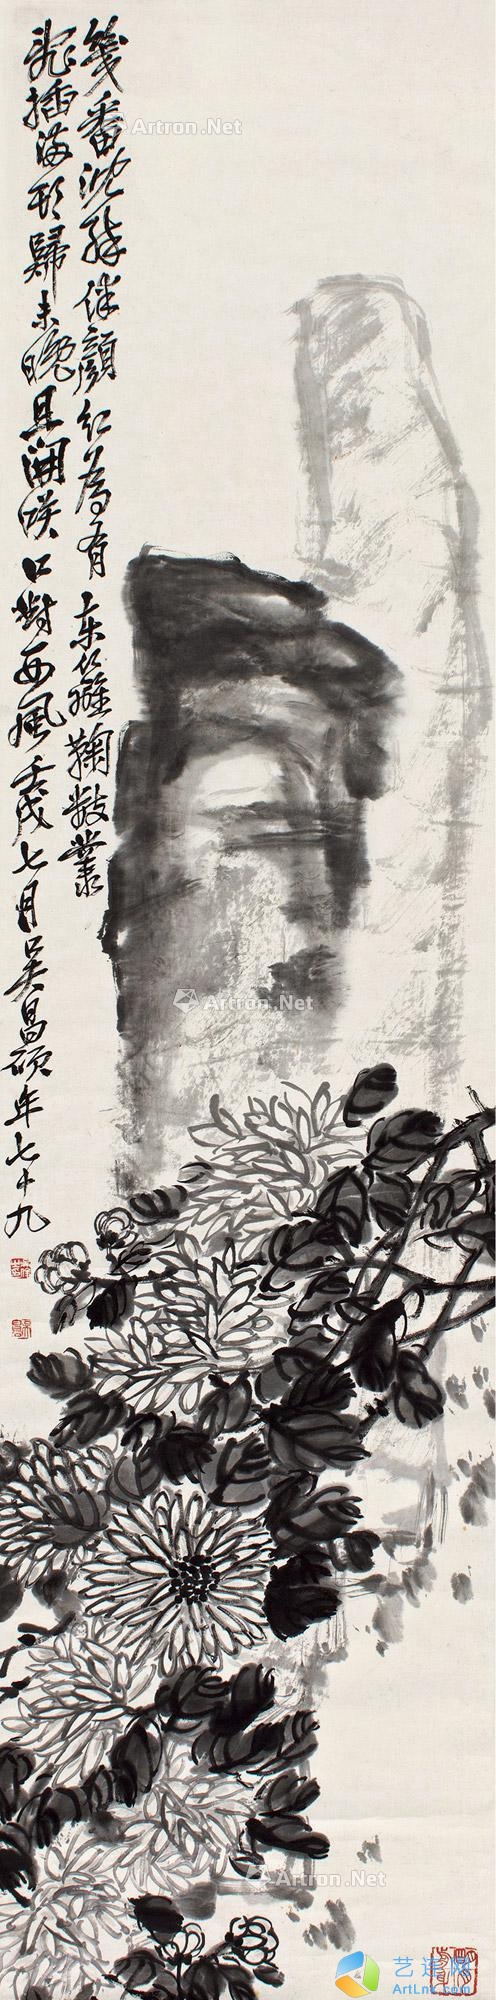 幾番沈醉伴顏紅為有東籬鞠數叢
插滿頭歸未晚且開咲口對西風壬戌七月吳昌碩年七十九
Artron.Net
Artron.Net
Artron.Net
艺达网
ArtLnk.com